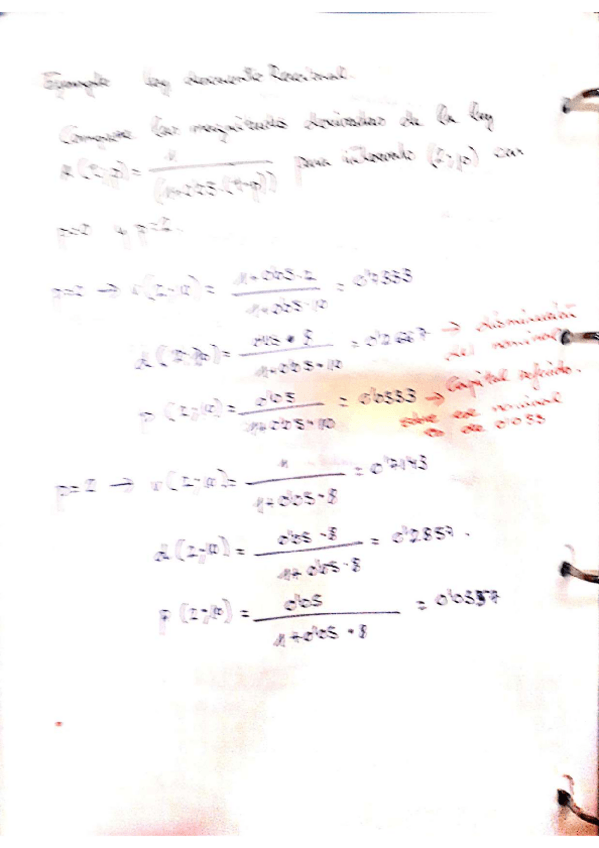 Ejemplo ley descuento Racional.
Compute las magnitudes derivadas de la ley
A(t;p) = 1 / (1+0'05·(t-p)) para intervalo (2;10) con
p=0 y p=2.
→ v(2;10) = 1+0'05·2 / 1+0'05·10 = 0'7333
d(2;10) = 0'05·8 / 1+0'05·10 = 0'2667 → disminución
del nominal
ρ(2;10) = 0'05 / 1+0'05·10 = 0'0333 → Capital
nominal
de 0'033
p=2 → v(2;10) = 1 / 1+0'05·8 = 0'7143
d(2;10) = 0'05·8 / 1+0'05·8 = 0'2857.
ρ(2;10) = 0'05 / 1+0'05·8 = 0'0357